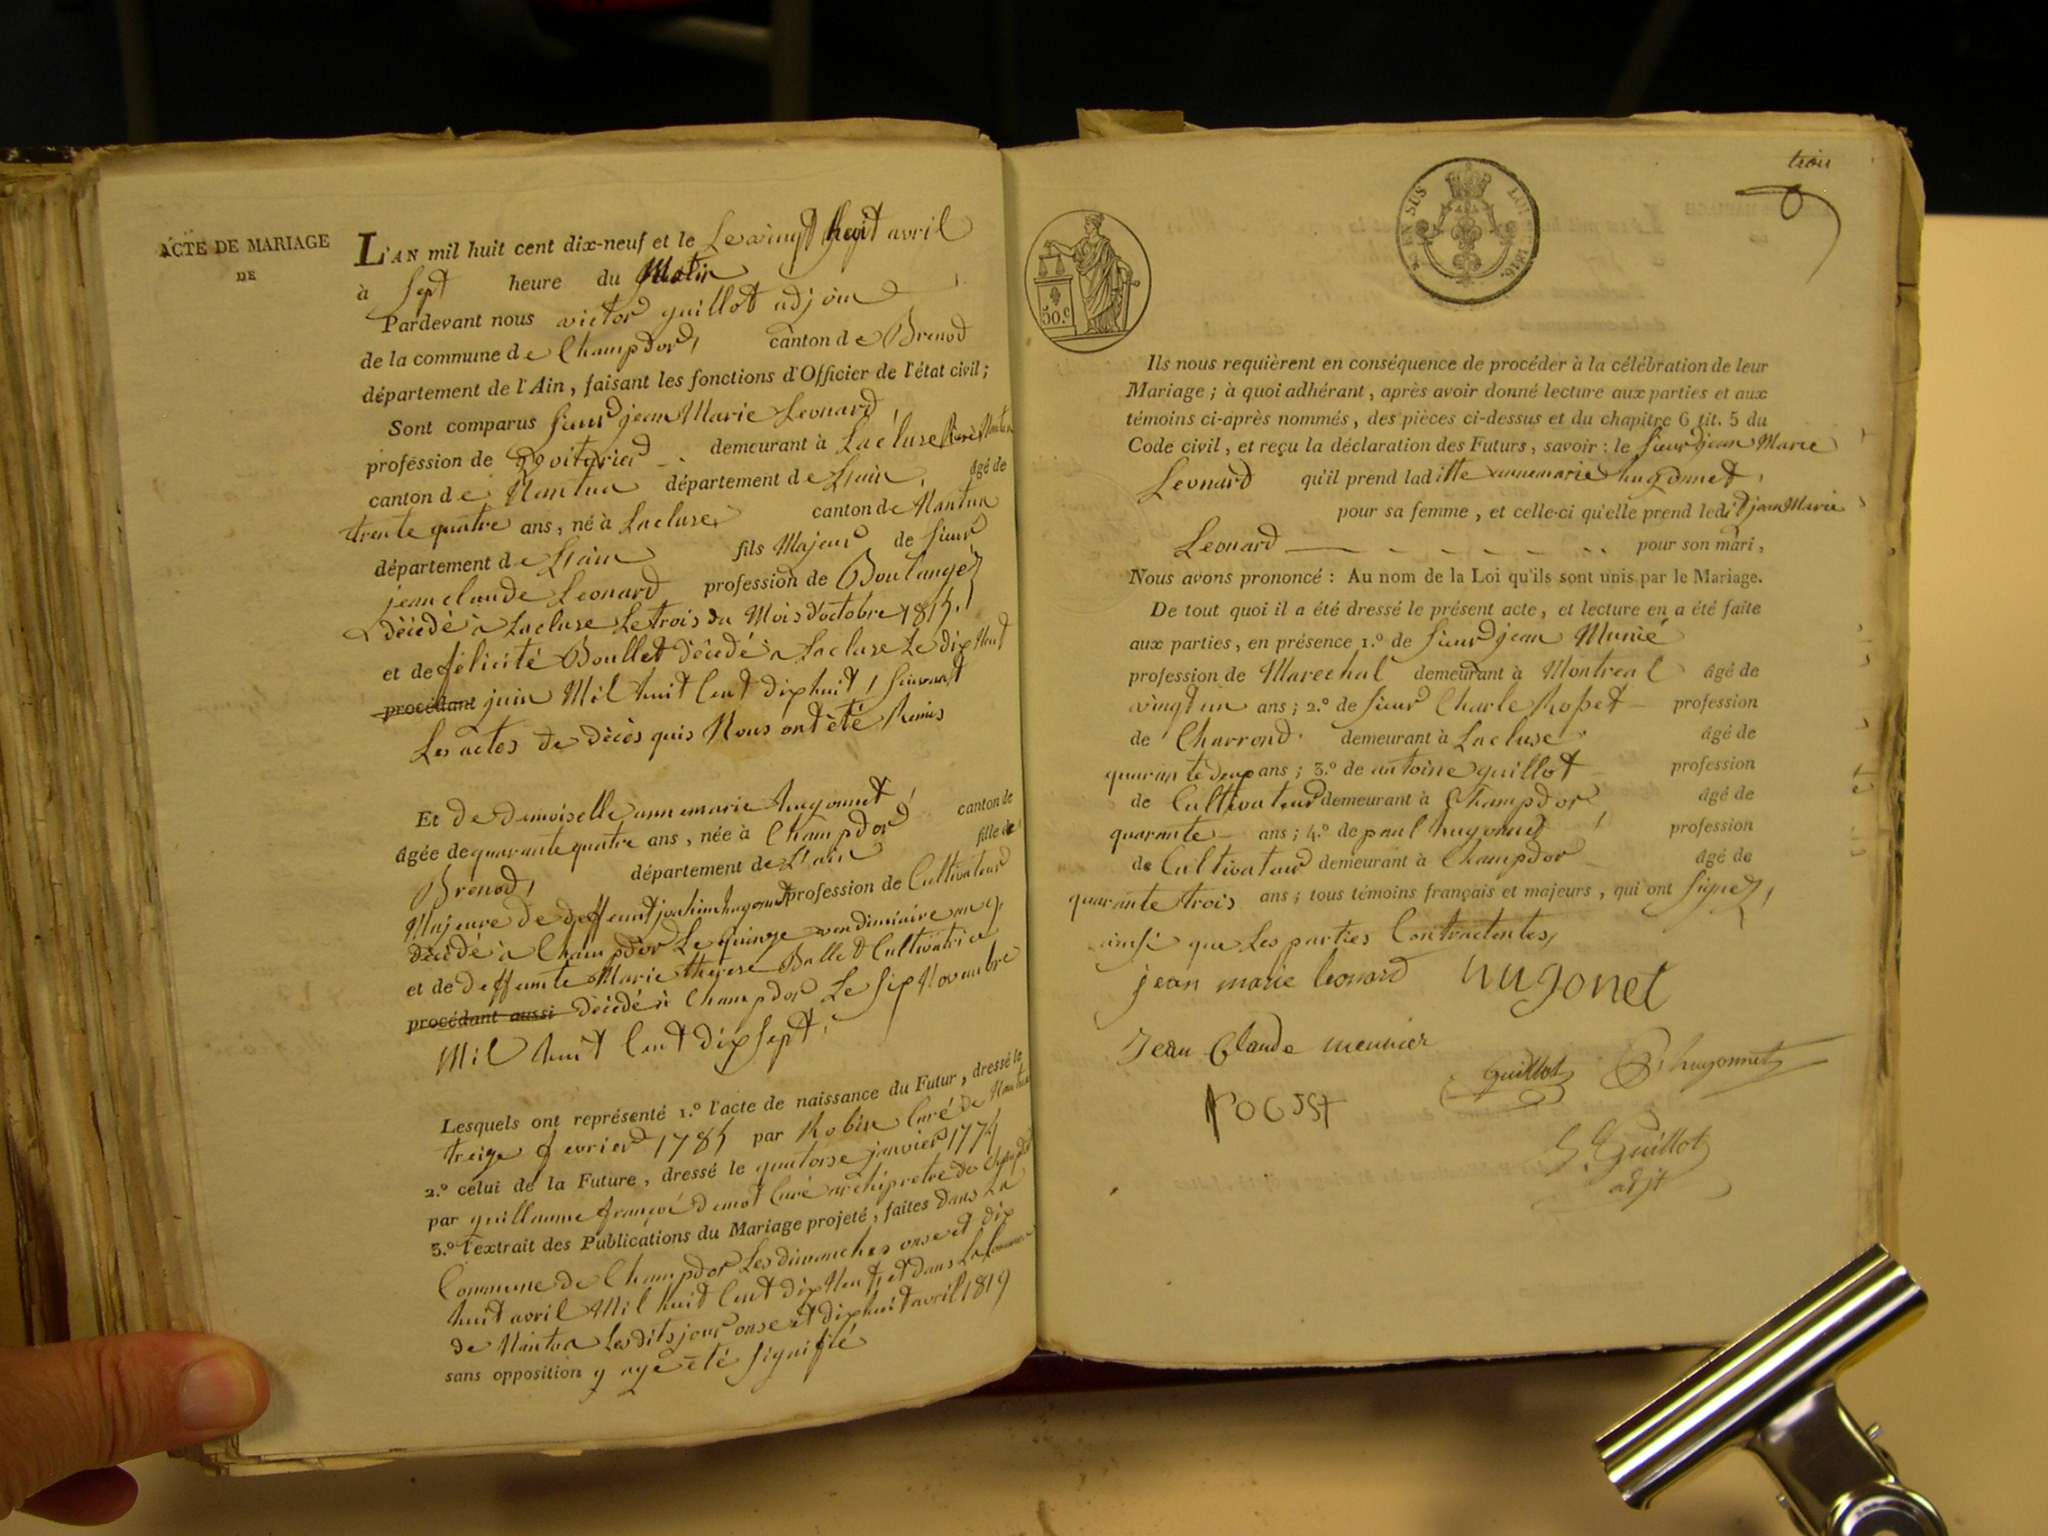 ACTE DE MARIAGE
DE
L'AN mil huit cent dix-neuf et le Le vingt huit avril
à sept heure du Matin
Pardevant nous victor guillot adjoin
de la commune de Champdor, canton de Brenod
département de l'Ain, faisant les fonctions d'Officier de l'état civil;
Sont comparus sieur jean Marie Leonard,
profession de demeurant à Lacluse
canton de Nantua département de L'ain, âgé de
trente quatre ans, né à Lacluse canton de Nantua
département de L'ain fils Majeur de sieur
jean claude Leonard profession de Boulanger
décédé à Lacluse Le trois du Mois d'octobre
et de félicité Boullet décédé à Lacluse Le dix Neuf
procédant juin Mil huit Cent dix huit, suivant
Les actes de décès quis Nous ont été Remis
Et de demoiselle anne marie hugonnet,
âgée de quarante quatre ans, née à Champdor canton de
Brenod, département de L'ain fille de
Majeure de deffunt joachim hugonnet profession de Cultivateur
décédé à Champdor Le quinze vendimiaire an 9.
et de deffunte Marie therese Ballet Cultivatrice
procédant aussi décédé à Champdor Le sept Novembre
Mil huit Cent dix sept.
Lesquels ont représenté 1.º l'acte de naissance du Futur, dressé le
treize fevrier 1785 par Robin Curé de Nantua
2.º celui de la Future, dressé le quatorse janvier 1775
par guillaume françois Curé archipretre de Champdor
3.º l'extrait des Publications du Mariage projeté, faites dans La
Commune de Champdor Les dimanches onse et dix
huit avril Mil huit Cent dix Neuf, et dans La Commune
de Nantua Lesdits jour onse et dix huit avril 1819
sans opposition y aye été signifié
trois
S. EN SUS LOI 1816.
50.c
Ils nous requièrent en conséquence de procéder à la célébration de leur
Mariage; à quoi adhérant, après avoir donné lecture aux parties et aux
témoins ci-après nommés, des pièces ci-dessus et du chapitre 6 tit. 5 du
Code civil, et reçu la déclaration des Futurs, savoir: le sieur jean Marie
Leonard qu'il prend laditte anne marie hugonnet,
pour sa femme, et celle-ci qu'elle prend ledit jean Marie
Leonard pour son mari,
Nous avons prononcé: Au nom de la Loi qu'ils sont unis par le Mariage.
De tout quoi il a été dressé le présent acte, et lecture en a été faite
aux parties, en présence 1.º de sieur jean Munié
profession de Marechal demeurant à Montreal âgé de
vingt un ans; 2.º de sieur Charle Rosset profession
de Charrond demeurant à Lacluse âgé de
quarante deux ans; 3.º de antoine guillot profession
de Cultivateur demeurant à Champdor âgé de
quarante ans; 4.º de paul hugonnet profession
de Cultivateur demeurant à Champdor âgé de
quarante trois ans; tous témoins français et majeurs, qui ont signez,
ainsi que Les parties Contractentes,
jean marie leonard hugonet
Jean Claude meunier
guillot P. hugonnet
rosset
V. Guillot
adjt